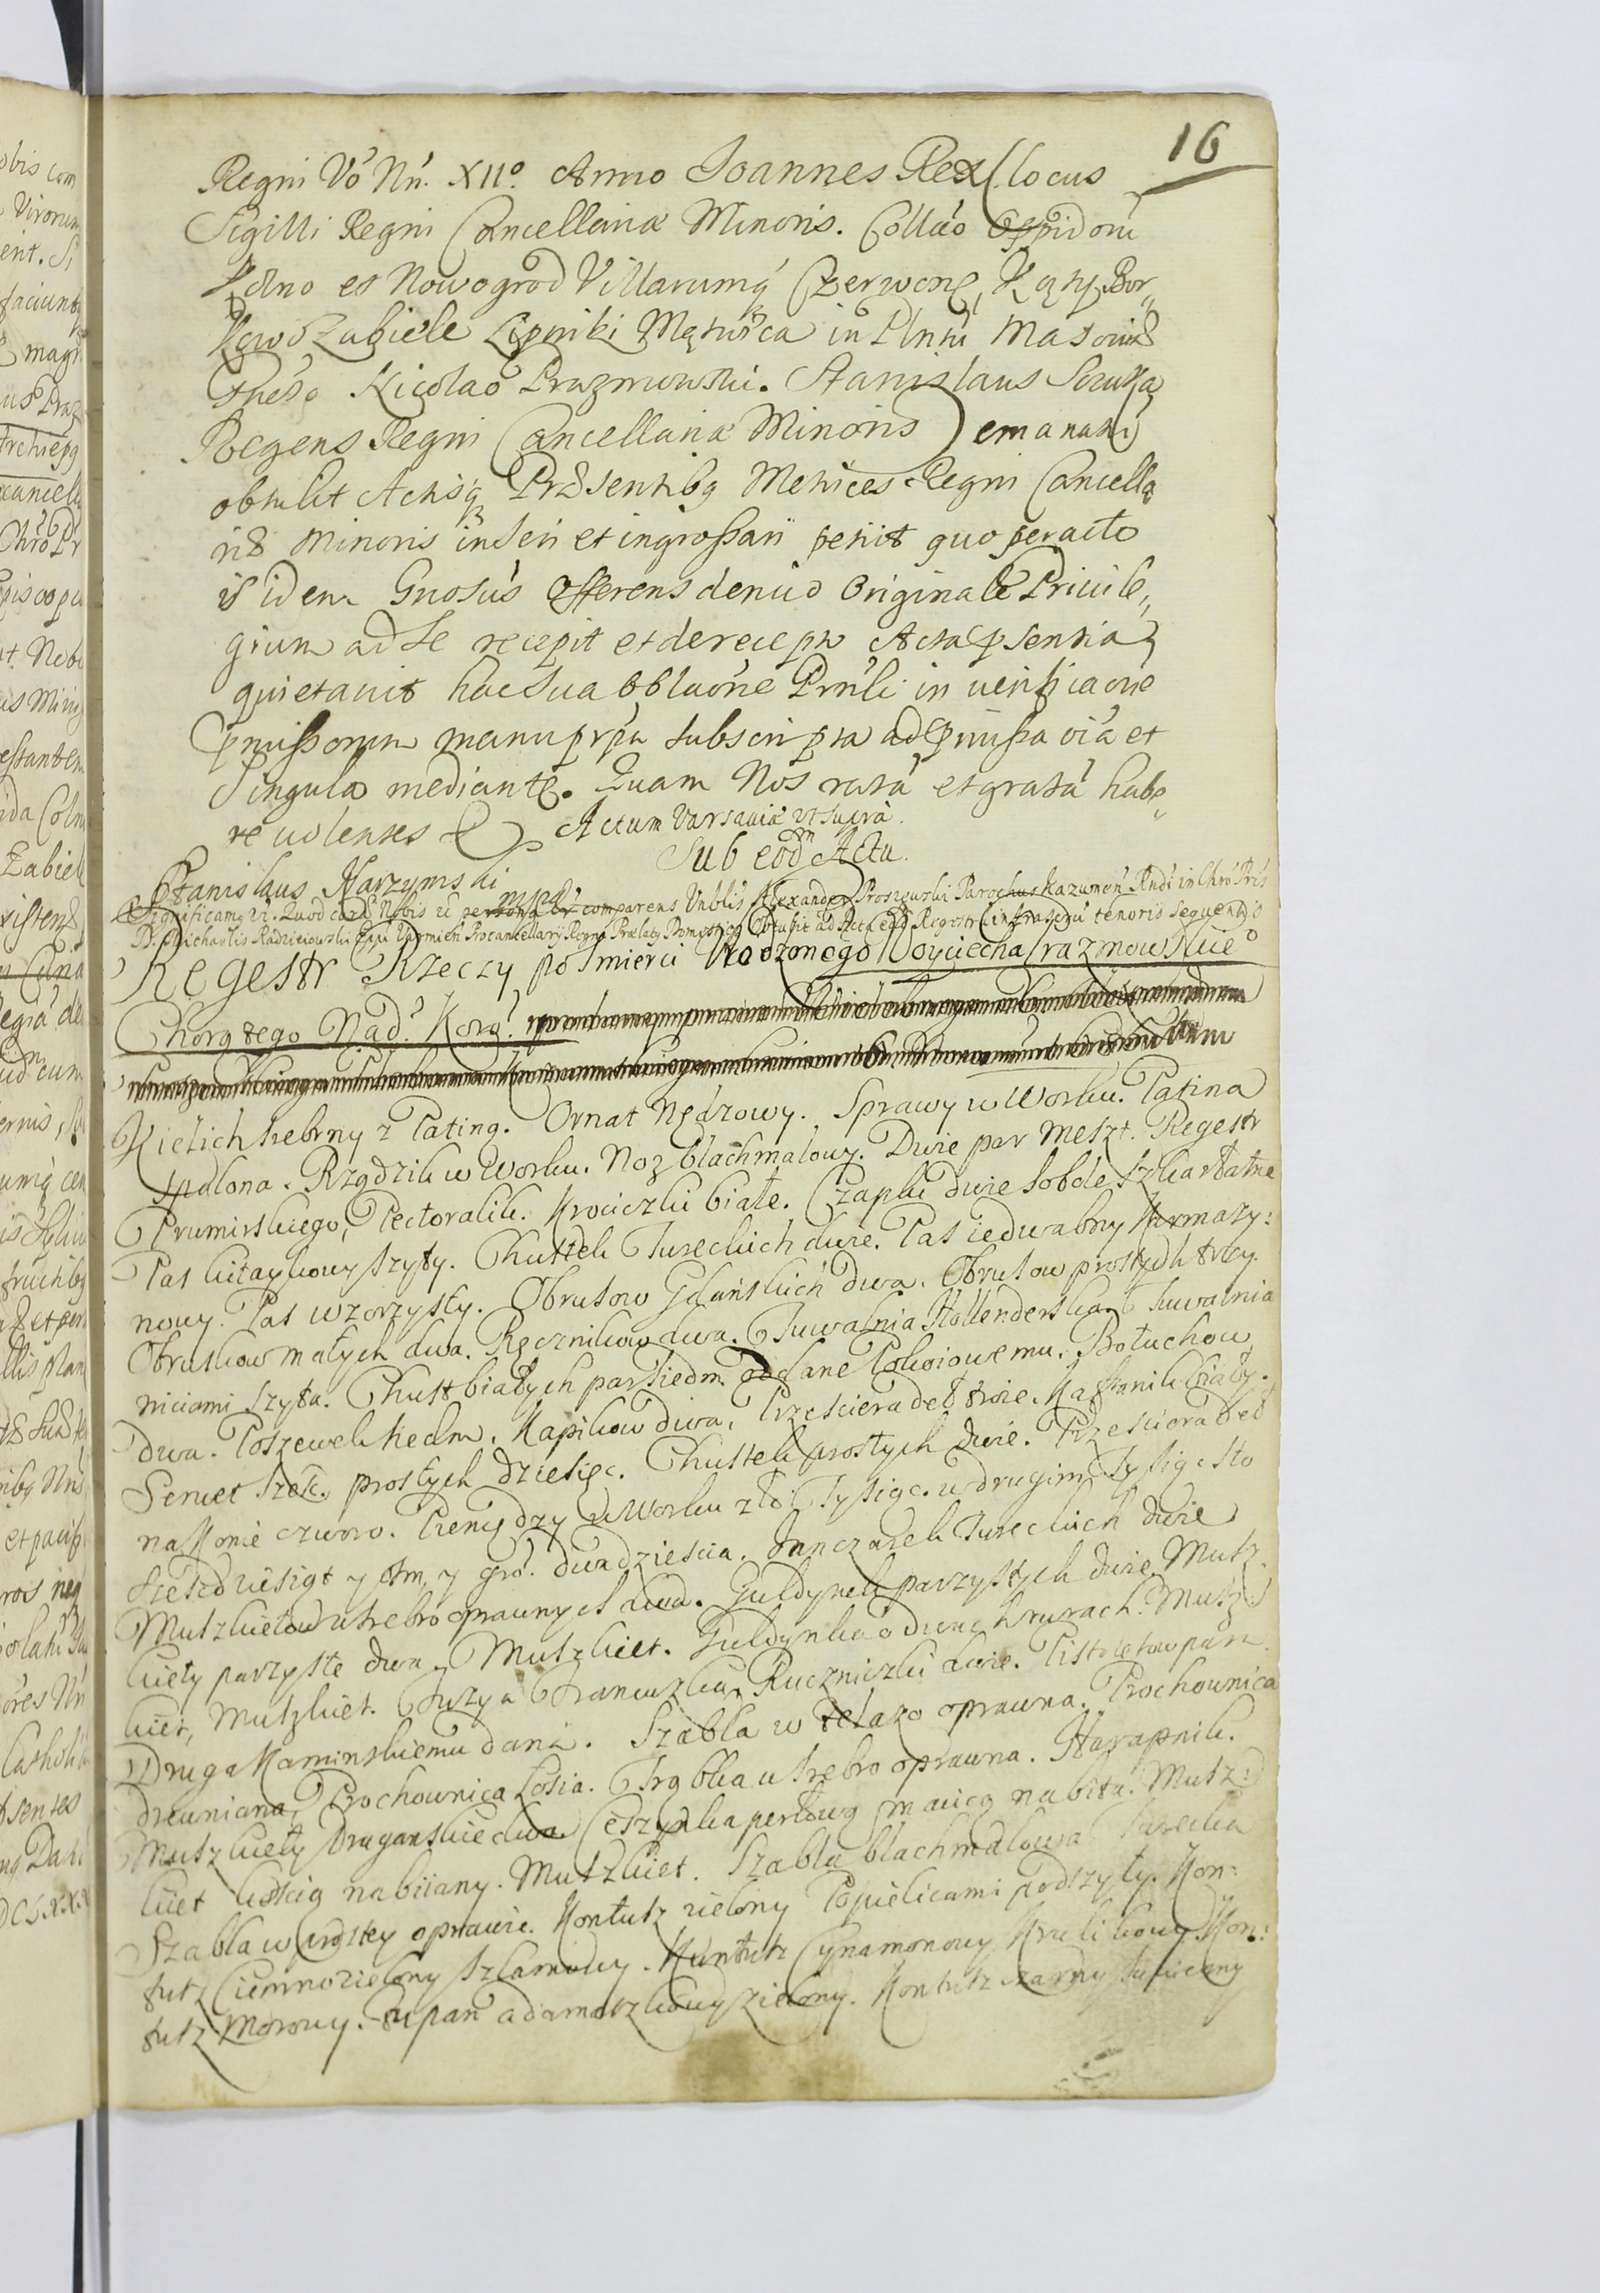 16
Regni Vō Nři. XII° Anno Joannes Rex (locus
Sigilli Regni Cancellariæ Minoris. Collāo Oppidorū
Kolno et Nowogrod Villarumq Czerwone, Kąty, Bor„
kowo Zabiele Lipniki Mątwica in Plntū Masoviæ
Gneso Nicolao Prazmowski. Stanislaus Szczuka
Regens Regni Cancellariæ Minoris) emanatū
obtulit Actisq Præsentibq Metrices Regni Cancella
riæ Minoris inseri et ingrossari petiit quo peracto
is idem Gnosus Offerens denuo Originale Privile„
gium ad se recepit et de recepto Acta psentia
quietavit hac sua oblaōne Prnli in verificaōne
pmissorum manu ppa subscripta ad pmissa oīa et
singula mediante. Quam Nos ratā et gratā habe„
re volentes Actum Varsaviæ ut supra.
Sub eodm Actu.
Stanislaus Narzymski
Significamq ūt. Quod corā Nobis comparens Vnblis Alexander Proszewski Parochus Kazumeń Rndi in Chrō Pris
D. Michaelis Radzieiowski Epi Varmień Procancellarij Regni Prælatq Domesticq Obtulit ad Acta eād Regestr infrascptū tenoris sequentis
Regestr Rzeczy po śmierci Urodzonego Woyciecha Prazmowskie°
Chorąžego Nad: Kor:
Kielich srebrny z Patiną. Ornat Nędzowy. Sprawy w Worku. Patina
spalona. Rządzik w Worku. Noz blachmalowy. Dwie par Meszt. Regestr
Prumirskiego, Pectoralik. Krociczki białe. Czapki dwie sobole szkarłatne
Pas kitaykowy szyty. Chustek Tureckich dwie. Pas iedwabny Karmazy:
nowy. Pas wzorzysty. Obrusow Gdańskich dwa. Obrusow prostych trzy.
Obruskow małych dwa. Ręcznikow dwa. Tuwalnia Hollenderska. Tuwalnia
niciami szyta. Chust białych par siedm. oddane Pokoiowemu. Botuchow
dwa. Poszewek siedm. Kapikow dwa. Prześcieradeł troie. Kaftanik biały.
Serwet sześć, prostych dziesięc. Chustek prostych dwie. Prześcieradeł
na Konie czworo. Pieniędzy w Worku zło: Tysiąc. w drugim Tysiąc sto
sześdziesiąt y ośm, y gro: dwadzieścia. Janczarek Tureckich dwie
Muszkietow w srebro oprawnych dwa. Guldynek parzystych dwie. Musz
kiety parzyste dwa, Muszkiet. Guldynka o dwuch rurach. Musz:
kiet, Muszkiet. Fuzya Francuzka, Ruczniczki dwie. Pistoletow para
Druga Kaminskiemu dana. Szabla w żelazo oprawna. Prochownica
drewniana, Prochownica Łosia. Trąbka w srebro oprawna. Harapnik.
Muszkiety Draganskie dwa. Cieszynka perłową macicą nabita. Musz:
kiet kością nabiiany. Muszkiet. Szabla blachmalowa Turecka
Szabla w prostey oprawie. Kontusz zielony Popielicami podszyty. Kon:
tusz Ciemnozielony szlamowy. Kontusz Cynamonowy Krolikowy. Kon:
tusz Morowy. Zupan adamaszkowy zielony. Kontusz czarny